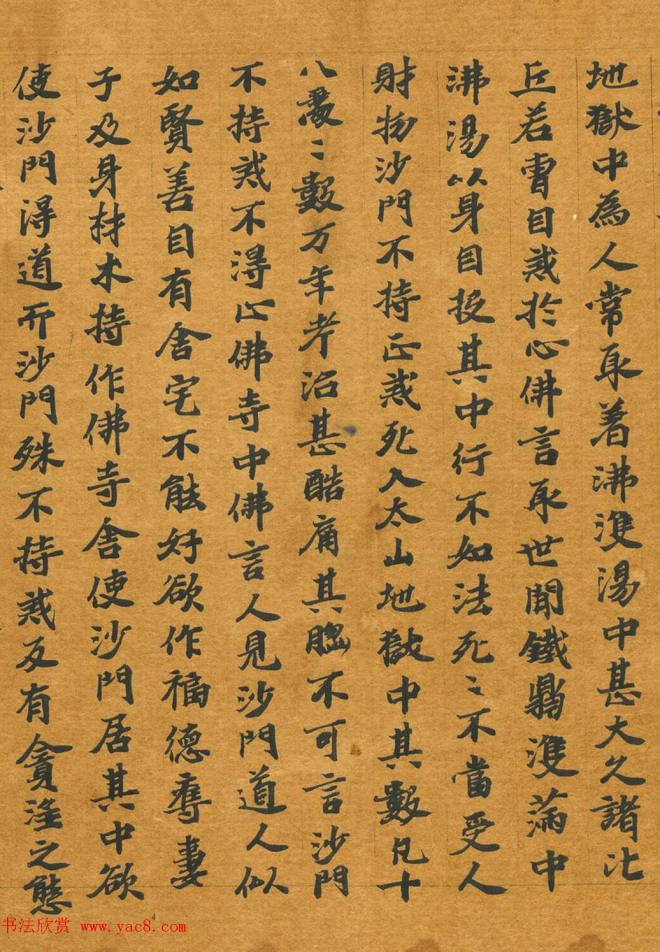 地獄中為人常取着沸濩湯中甚大久諸比
丘若曹自戒於心佛言取世間鐵鼎濩滿中
沸湯以身自投其中行不如法死〻不當受人
財物沙門不持正戒死入太山地獄中其數凡十
八處〻數万年考治甚酷痛其不可言沙門
不持戒不得止佛寺中佛言人見沙門道人似
如賢善自有舍宅不能好欲作福德奪妻
子及身材木持作佛寺舍使沙門居其中欲
使沙門得道沙門殊不持戒反有貪淫之態
书法欣赏 www.yac8.com